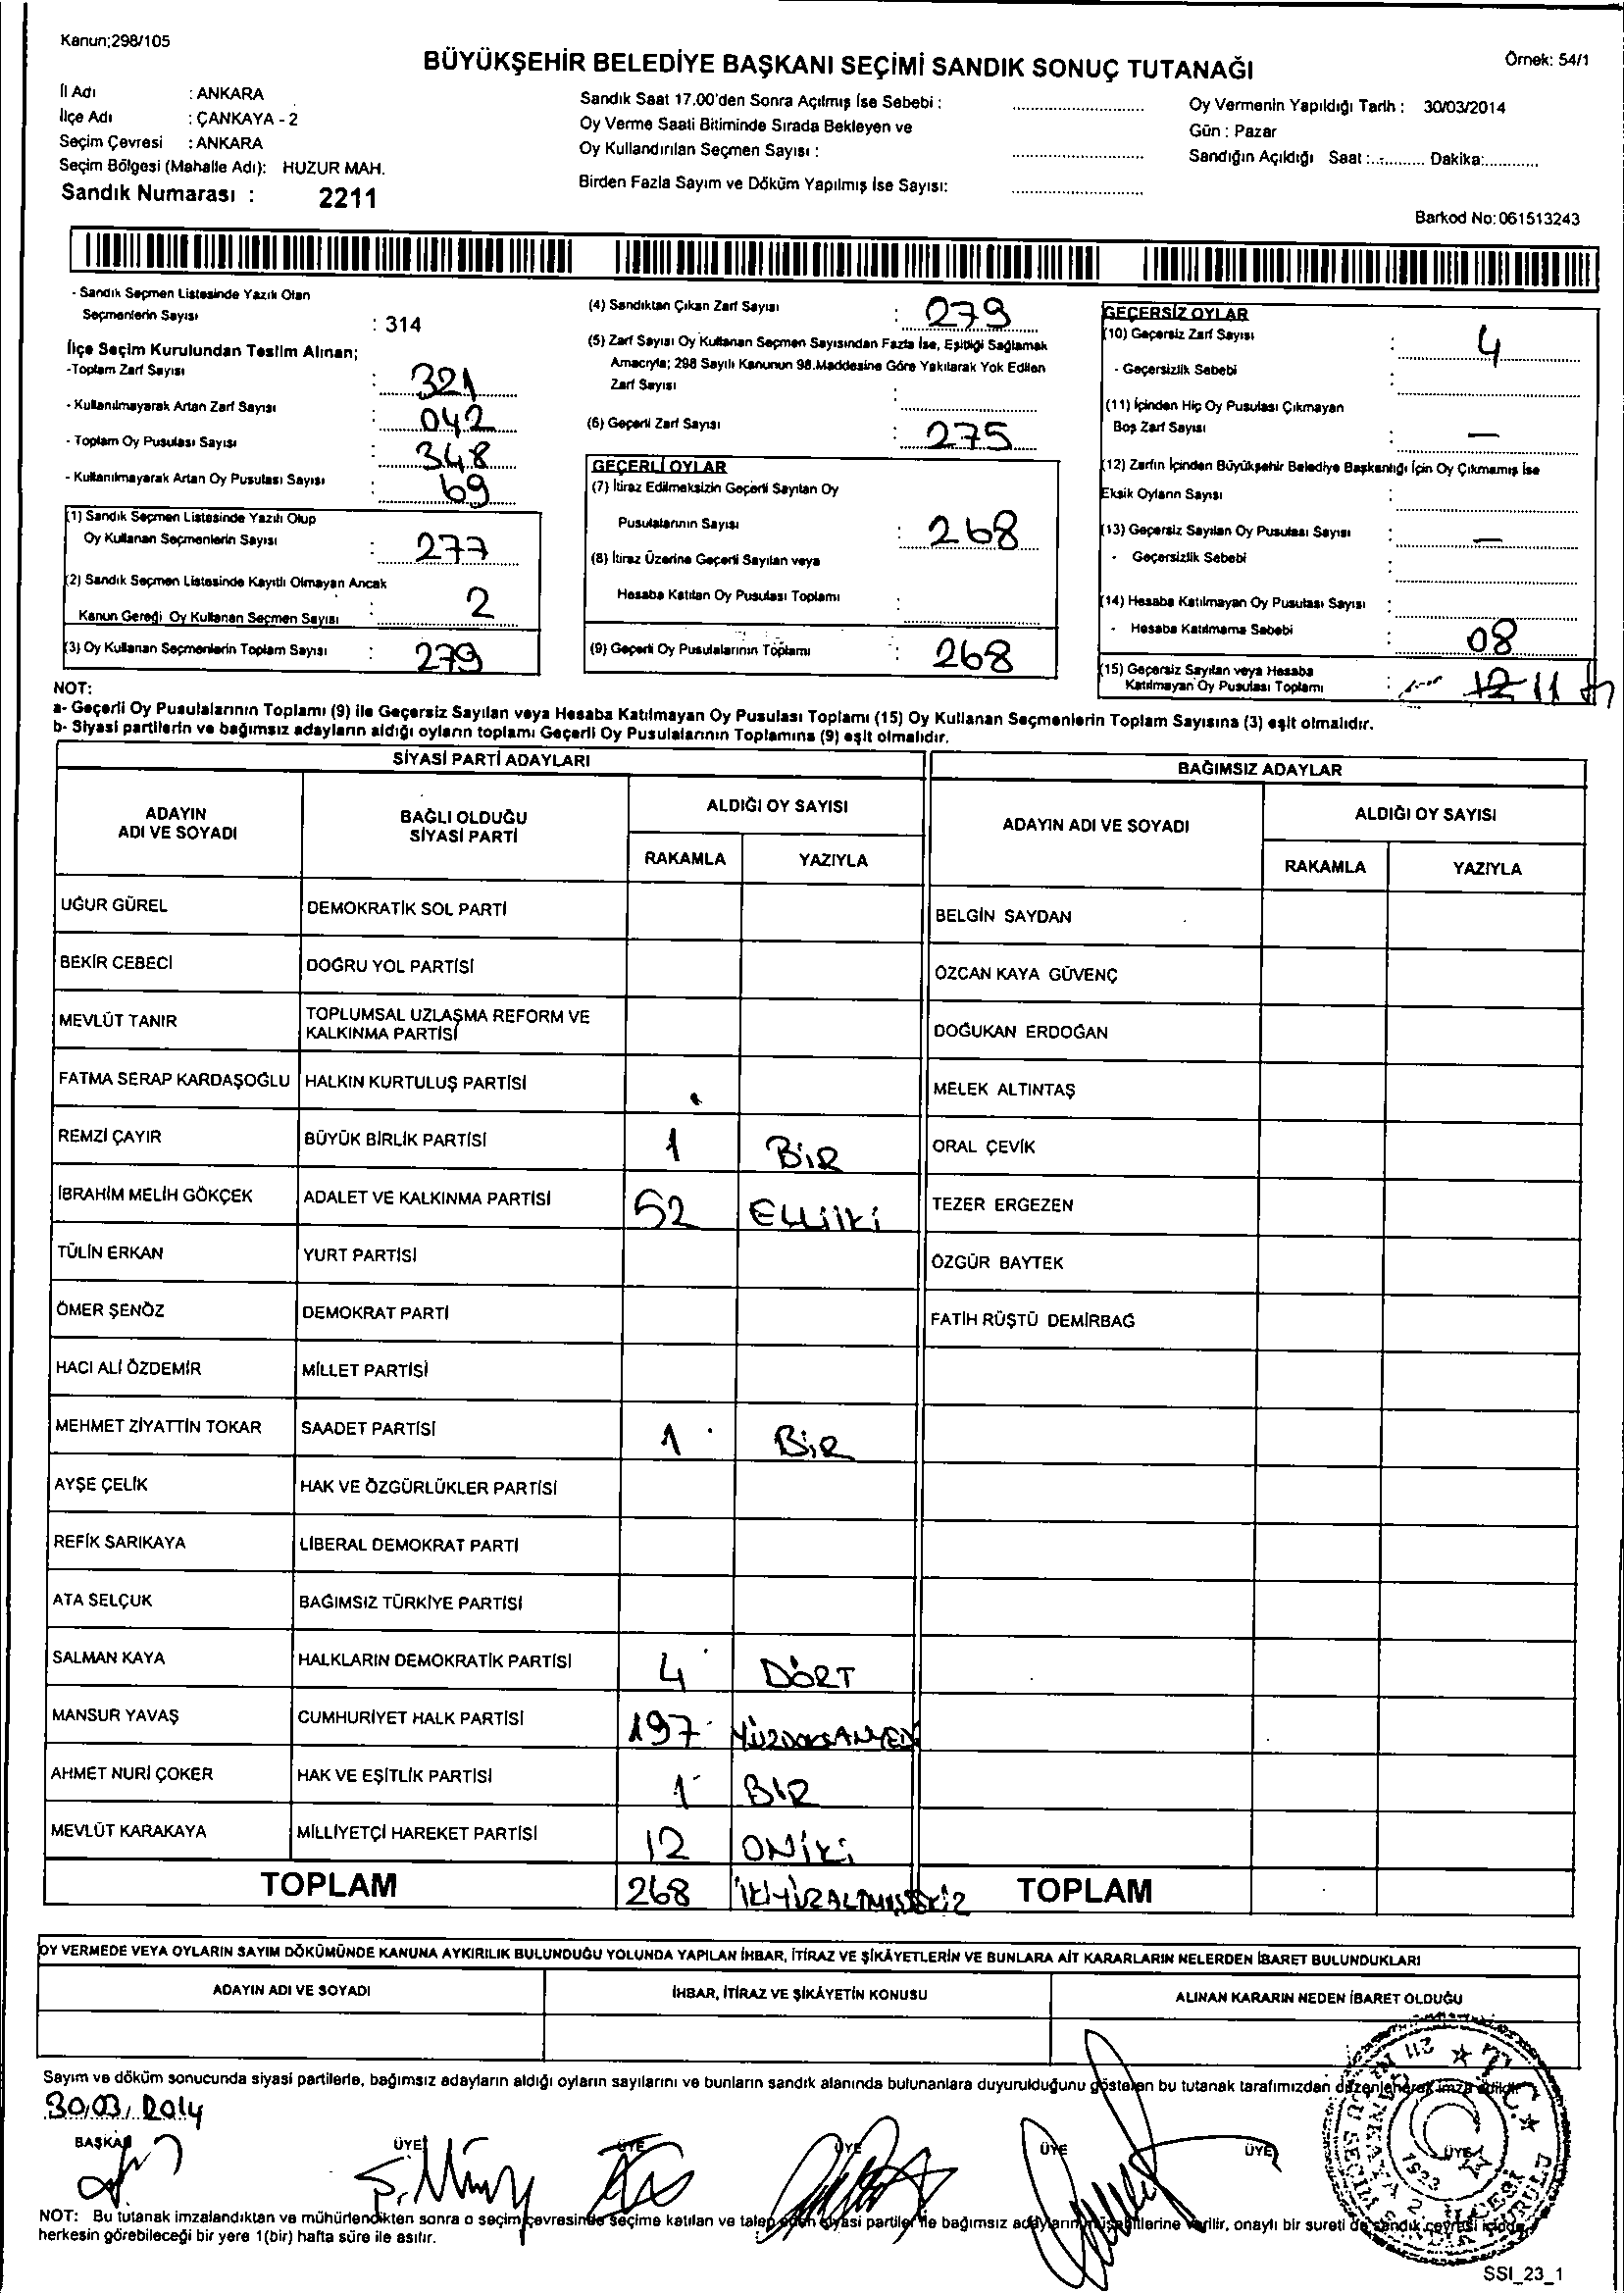 Kanun;298/105
BÜYÜKŞEHİR BELEDİYE BAŞKANI SEÇİMİ SANDIK SONUÇ TUTANAĞI
Örnek: 54/1
İl Adı : ANKARA
İlçe Adı : ÇANKAYA - 2
Seçim Çevresi : ANKARA
Seçim Bölgesi (Mahalle Adı): HUZUR MAH.
Sandık Numarası : 2211
Sandık Saat 17.00'den Sonra Açılmış İse Sebebi :
Oy Verme Saati Bitiminde Sırada Bekleyen ve
Oy Kullandırılan Seçmen Sayısı :
Birden Fazla Sayım ve Döküm Yapılmış İse Sayısı:
Oy Vermenin Yapıldığı Tarih : 30/03/2014
Gün : Pazar
Sandığın Açıldığı Saat :........... Dakika:............
Barkod No:061513243
- Sandık Seçmen Listesinde Yazılı Olan
Seçmenlerin Sayısı : 314
İlçe Seçim Kurulundan Teslim Alınan;
-Toplam Zarf Sayısı : 321
- Kullanılmayarak Artan Zarf Sayısı : 042
- Toplam Oy Pusulası Sayısı : 348
- Kullanılmayarak Artan Oy Pusulası Sayısı : 69
(1) Sandık Seçmen Listesinde Yazılı Olup
Oy Kullanan Seçmenlerin Sayısı : 277
(2) Sandık Seçmen Listesinde Kayıtlı Olmayan Ancak
Kanun Gereği Oy Kullanan Seçmen Sayısı : 2
(3) Oy Kullanan Seçmenlerin Toplam Sayısı : 279
(4) Sandıktan Çıkan Zarf Sayısı : 279
(5) Zarf Sayısı Oy Kullanan Seçmen Sayısından Fazla İse, Eşitliği Sağlamak
Amacıyla; 298 Sayılı Kanunun 98.Maddesine Göre Yakılarak Yok Edilen
Zarf Sayısı :
(6) Geçerli Zarf Sayısı : 275
GEÇERLİ OYLAR
(7) İtiraz Edilmeksizin Geçerli Sayılan Oy
Pusulalarının Sayısı : 268
(8) İtiraz Üzerine Geçerli Sayılan veya
Hesaba Katılan Oy Pusulası Toplamı :
(9) Geçerli Oy Pusulalarının Toplamı : 268
GEÇERSİZ OYLAR
(10) Geçersiz Zarf Sayısı : 4
- Geçersizlik Sebebi :
(11) İçinden Hiç Oy Pusulası Çıkmayan
Boş Zarf Sayısı : —
(12) Zarfın İçinden Büyükşehir Belediye Başkanlığı İçin Oy Çıkmamış İse
Eksik Oyların Sayısı :
(13) Geçersiz Sayılan Oy Pusulası Sayısı : —
- Geçersizlik Sebebi :
(14) Hesaba Katılmayan Oy Pusulası Sayısı :
- Hesaba Katılmama Sebebi : 08
(15) Geçersiz Sayılan veya Hesaba
Katılmayan Oy Pusulası Toplamı : 12 11
NOT:
a- Geçerli Oy Pusulalarının Toplamı (9) ile Geçersiz Sayılan veya Hesaba Katılmayan Oy Pusulası Toplamı (15) Oy Kullanan Seçmenlerin Toplam Sayısına (3) eşit olmalıdır.
b- Siyasi partilerin ve bağımsız adayların aldığı oyların toplamı Geçerli Oy Pusulalarının Toplamına (9) eşit olmalıdır.
SİYASİ PARTİ ADAYLARI
ADAYIN ADI VE SOYADI
BAĞLI OLDUĞU SİYASİ PARTİ
ALDIĞI OY SAYISI
RAKAMLA YAZIYLA
UĞUR GÜREL DEMOKRATİK SOL PARTİ
BEKİR CEBECİ DOĞRU YOL PARTİSİ
MEVLÜT TANIR TOPLUMSAL UZLAŞMA REFORM VE KALKINMA PARTİSİ
FATMA SERAP KARDAŞOĞLU HALKIN KURTULUŞ PARTİSİ
REMZİ ÇAYIR BÜYÜK BİRLİK PARTİSİ 1 BİR
İBRAHİM MELİH GÖKÇEK ADALET VE KALKINMA PARTİSİ 52 ELLİİKİ
TÜLİN ERKAN YURT PARTİSİ
ÖMER ŞENÖZ DEMOKRAT PARTİ
HACI ALİ ÖZDEMİR MİLLET PARTİSİ
MEHMET ZİYATTİN TOKAR SAADET PARTİSİ 1 BİR
AYŞE ÇELİK HAK VE ÖZGÜRLÜKLER PARTİSİ
REFİK SARIKAYA LİBERAL DEMOKRAT PARTİ
ATA SELÇUK BAĞIMSIZ TÜRKİYE PARTİSİ
SALMAN KAYA HALKLARIN DEMOKRATİK PARTİSİ 4 DÖRT
MANSUR YAVAŞ CUMHURİYET HALK PARTİSİ 197 YÜZDOKSANYEDİ
AHMET NURİ ÇOKER HAK VE EŞİTLİK PARTİSİ 1 BİR
MEVLÜT KARAKAYA MİLLİYETÇİ HAREKET PARTİSİ 12 ONİKİ
TOPLAM 268 İKİYÜZALTMIŞSEKİZ
BAĞIMSIZ ADAYLAR
ADAYIN ADI VE SOYADI
ALDIĞI OY SAYISI
RAKAMLA YAZIYLA
BELGİN SAYDAN
ÖZCAN KAYA GÜVENÇ
DOĞUKAN ERDOĞAN
MELEK ALTINTAŞ
ORAL ÇEVİK
TEZER ERGEZEN
ÖZGÜR BAYTEK
FATİH RÜŞTÜ DEMİRBAĞ
TOPLAM
OY VERMEDE VEYA OYLARIN SAYIM DÖKÜMÜNDE KANUNA AYKIRILIK BULUNDUĞU YOLUNDA YAPILAN İHBAR, İTİRAZ VE ŞİKÂYETLERİN VE BUNLARA AİT KARARLARIN NELERDEN İBARET BULUNDUKLARI
ADAYIN ADI VE SOYADI
İHBAR, İTİRAZ VE ŞİKÂYETİN KONUSU
ALINAN KARARIN NEDEN İBARET OLDUĞU
Sayım ve döküm sonucunda siyasi partilerle, bağımsız adayların aldığı oyların sayılarını ve bunların sandık alanında bulunanlara duyurulduğunu gösteren bu tutanak tarafımızdan düzenlenerek imza edildi.
30/03/2014
BAŞKAN ÜYE ÜYE ÜYE ÜYE ÜYE ÜYE
NOT: Bu tutanak imzalandıktan ve mühürlendikten sonra o seçim çevresinde seçime katılan ve talep eden siyasi partiler ile bağımsız adayların müşahitlerine verilir, onaylı bir sureti de sandık çevresi içinde
herkesin görebileceği bir yere 1(bir) hafta süre ile asılır.
SSI_23_1